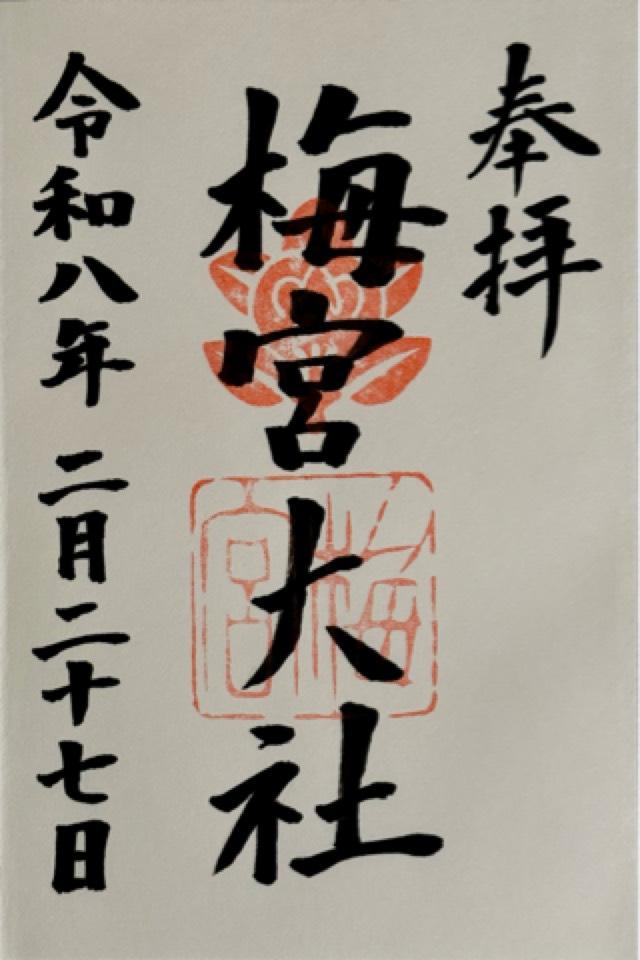 奉拝
梅宮大社
梅宮
令和八年二月二十七日